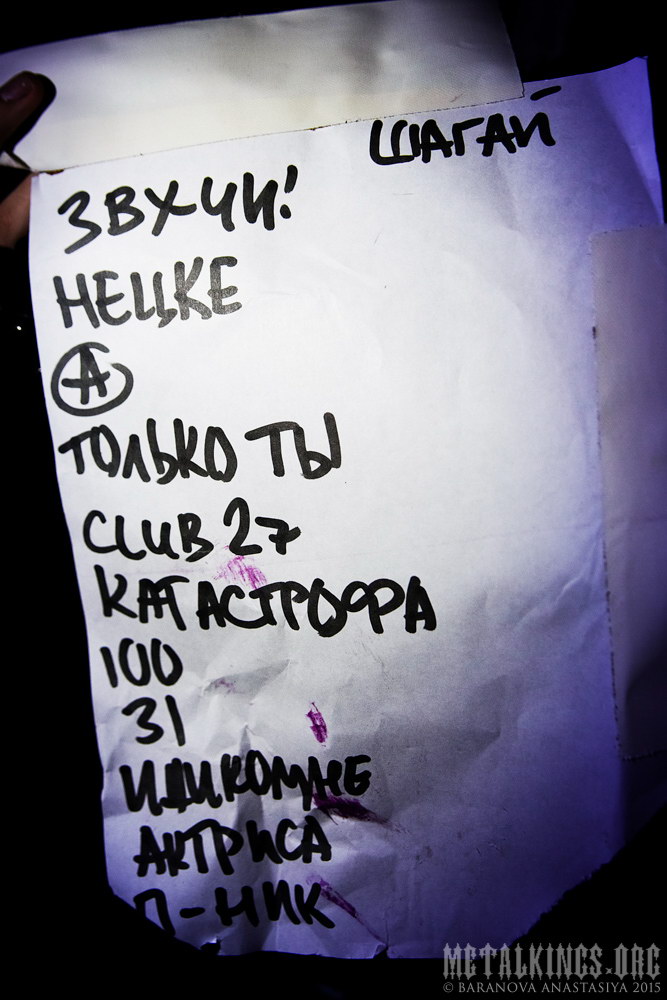 ШАГАЙ
ЗВУЧИ!
НЕЦКЕ
Ⓐ
ТОЛЬКО ТЫ
CLUB 27
КАТАСТРОФА
100
31
ИДИКОМНЕ
АКТРИСА
П-НИК
METALKINGS.ORG
© BARANOVA ANASTASIYA 2015